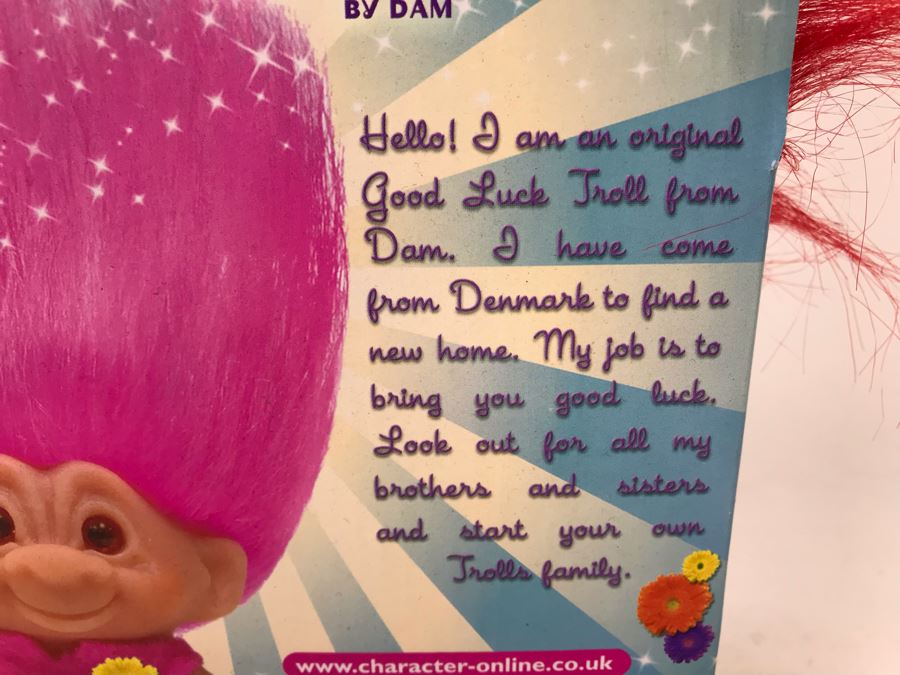 BY DAM
Hello! I am an original
Good Luck Troll from
Dam. I have come
from Denmark to find a
new home. My job is to
bring you good luck.
Look out for all my
brothers and sisters
and start your own
Trolls family.
www.character-online.co.uk